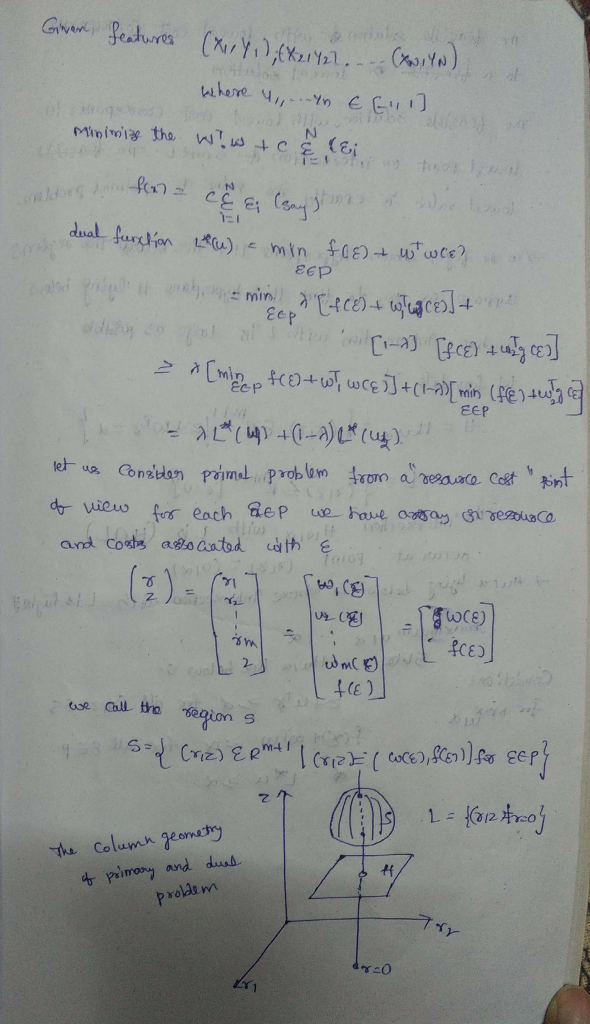 Given features (X1, Y1), (X2, Y2), .... (XN, YN)
where y1, ... yn ∈ [-1, 1]
minimize the wT.w + C N Σ i=1 (Ei
f(x) = C N Σ i=1 Ei (say)
dual function L*(u) = min E∈P f(E) + uT w(E)
= min E∈P λ [f(E) + u1T w g(E)] +
[1-λ] [f(E) + u2T g(E)]
≥ λ [min E∈P f(E) + uT1 w(E)] + (1-λ) [min E∈P (f(E) + u2T g(E)]
= λ L*(u1) + (1-λ) L*(u2).
let us consider primal problem from a "resource cost" point
of view for each E∈P we have array of resource
and costs associated with E
(r z) = [r1 r2 ⋮ rm z] = [w1(E) w2(E) ⋮ wm(E) f(E)] = [w(E) f(E)]
we call the region s
S = { (r,z) ∈ R^m+1 | (r,z) = (w(E), f(E)) for E∈P}
z
S
L = {(r,z) | r=0}
The column geometry
of primary and dual
problem
H
r2
r=0
r1